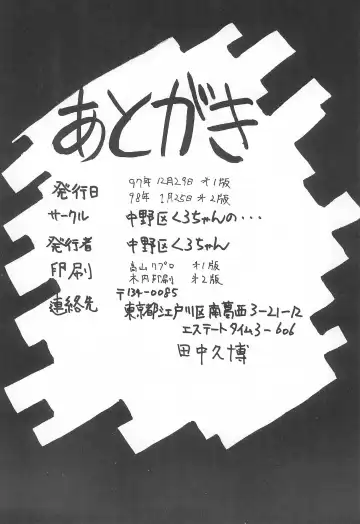 あとがき
発行日 97年12月29日 オ1版
98年 1月25日 オ2版
サークル 中野区くろちゃんの・・・
発行者 中野区くろちゃん
印刷 オ1版
木内印刷 オ2版
連絡先 〒134-0085
東京都江戸川区南葛西3-21-12
エステートタイム3-606
田中久博